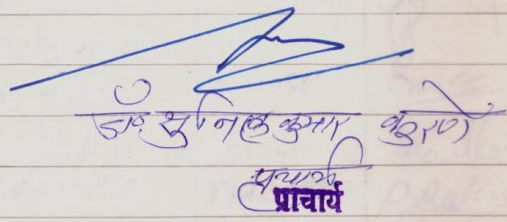 डॉ. सुनिल कुमार कुरणे
प्राचार्य
प्राचार्य